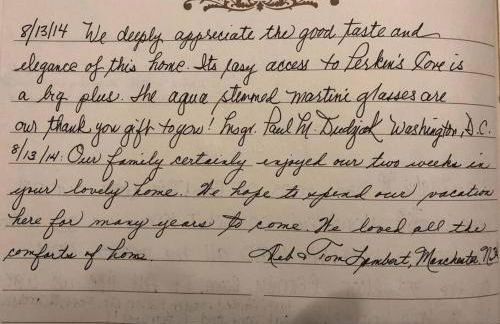 8/13/14 We deeply appreciate the good taste and
elegance of this home. Its easy access to Perkin's Cove is
a big plus. The aqua stemmed martini glasses are
our thank you gift to you! Msgr. Paul M. Washington, D.C.
8/13/14. Our family certainly enjoyed our two weeks in
your lovely home. We hope to spend our vacation
here for many years to come. We loved all the
comforts of home. Deb & Tom Lambert, Manchester, N.H.